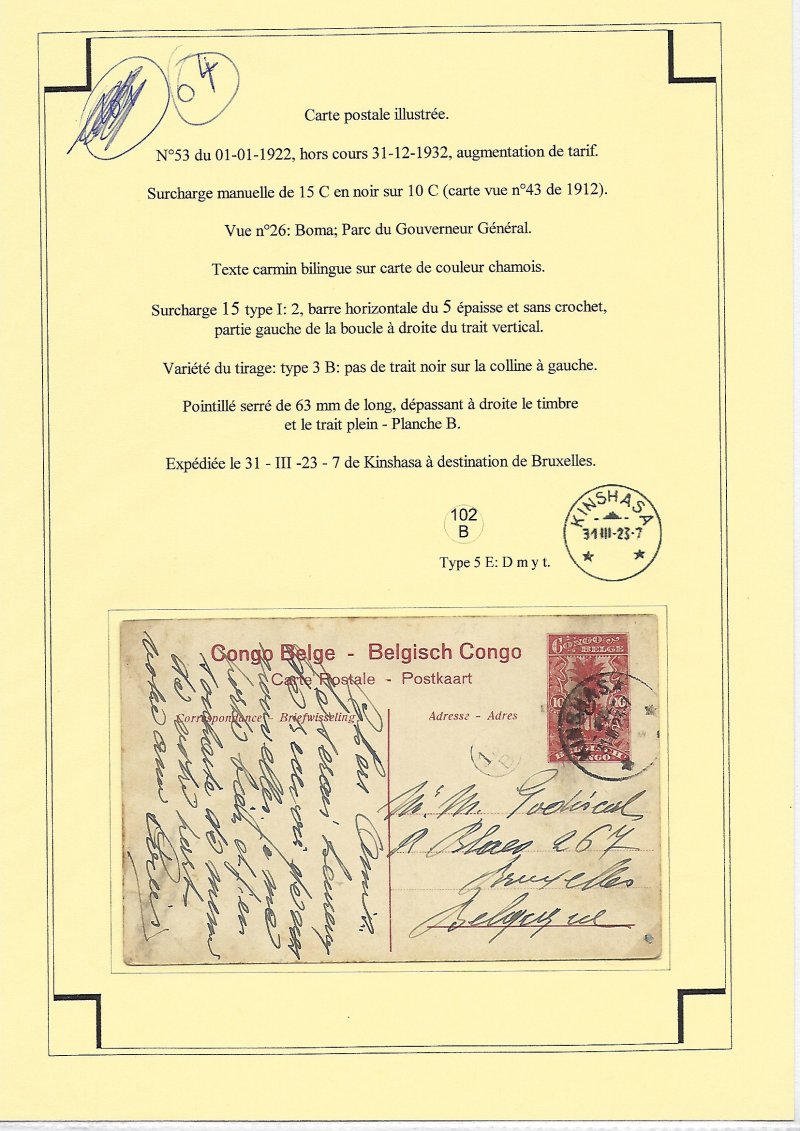 64
Carte postale illustrée.
N°53 du 01-01-1922, hors cours 31-12-1932, augmentation de tarif.
Surcharge manuelle de 15 C en noir sur 10 C (carte vue n°43 de 1912).
Vue n°26: Boma; Parc du Gouverneur Général.
Texte carmin bilingue sur carte de couleur chamois.
Surcharge 15 type I: 2, barre horizontale du 5 épaisse et sans crochet,
partie gauche de la boucle à droite du trait vertical.
Variété du tirage: type 3 B: pas de trait noir sur la colline à gauche.
Pointillé serré de 63 mm de long, dépassant à droite le timbre
et le trait plein - Planche B.
Expédiée le 31 - III -23 - 7 de Kinshasa à destination de Bruxelles.
102
B
KINSHASA
31 III-23-7
Type 5 E: D m y t.
Congo Belge - Belgisch Congo
Carte Postale - Postkaart
Correspondance - Briefwisseling
Adresse - Adres
CONGO
BELGE
10
KINSHASA
Chers Amis.
Je serais heureux
de recevoir de vos
nouvelles. je me
porte bien et j'en
souhaite de même
de votre part
votre ami
Mr M. Godiscal
R Blaes 267
Bruxelles
Belgique